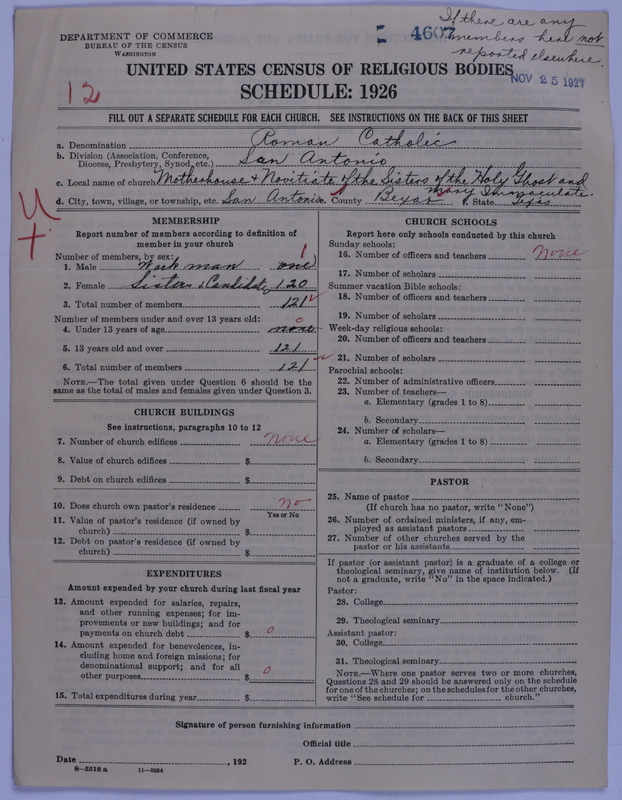 If there are any
members here not
reported elsewhere.
4607
NOV 25 1927
DEPARTMENT OF COMMERCE
BUREAU OF THE CENSUS
WASHINGTON
UNITED STATES CENSUS OF RELIGIOUS BODIES
SCHEDULE: 1926
12
FILL OUT A SEPARATE SCHEDULE FOR EACH CHURCH. SEE INSTRUCTIONS ON THE BACK OF THIS SHEET
a. Denomination Roman Catholic
b. Division (Association, Conference, Diocese, Presbytery, Synod, etc.) San Antonio
c. Local name of church Motherhouse & Novitiate of the Sisters of the Holy Ghost and Mary Immaculate.
d. City, town, village, or township, etc. San Antonio e. County Bexar f. State Texas
MEMBERSHIP
Report number of members according to definition of
member in your church
Number of members, by sex:
1. Male Work man one 1
2. Female Sisters & Candidates 120
3. Total number of members 121
Number of members under and over 13 years old:
4. Under 13 years of age none 0
5. 13 years old and over 121
6. Total number of members 121
NOTE.—The total given under Question 6 should be the
same as the total of males and females given under Question 3.
CHURCH BUILDINGS
See instructions, paragraphs 10 to 12
7. Number of church edifices None
8. Value of church edifices $
9. Debt on church edifices $
10. Does church own pastor's residence No
Yes or No
11. Value of pastor's residence (if owned by
church) $
12. Debt on pastor's residence (if owned by
church) $
EXPENDITURES
Amount expended by your church during last fiscal year
13. Amount expended for salaries, repairs,
and other running expenses; for im-
provements or new buildings; and for
payments on church debt $ 0
14. Amount expended for benevolences, in-
cluding home and foreign missions; for
denominational support; and for all
other purposes $ 0
15. Total expenditures during year $
CHURCH SCHOOLS
Report here only schools conducted by this church
Sunday schools:
16. Number of officers and teachers None
17. Number of scholars
Summer vacation Bible schools:
18. Number of officers and teachers
19. Number of scholars
Week-day religious schools:
20. Number of officers and teachers
21. Number of scholars
Parochial schools:
22. Number of administrative officers
23. Number of teachers—
a. Elementary (grades 1 to 8)
b. Secondary
24. Number of scholars—
a. Elementary (grades 1 to 8)
b. Secondary
PASTOR
25. Name of pastor
(If church has no pastor, write "None")
26. Number of ordained ministers, if any, em-
ployed as assistant pastors
27. Number of other churches served by the
pastor or his assistants
If pastor (or assistant pastor) is a graduate of a college or
theological seminary, give name of institution below. (If
not a graduate, write "No" in the space indicated.)
Pastor:
28. College
29. Theological seminary
Assistant pastor:
30. College
31. Theological seminary
NOTE.—Where one pastor serves two or more churches,
Questions 28 and 29 should be answered only on the schedule
for one of the churches; on the schedules for the other churches,
write "See schedule for church."
Signature of person furnishing information
Official title
Date , 192 P. O. Address
8—5518 a 11—9054